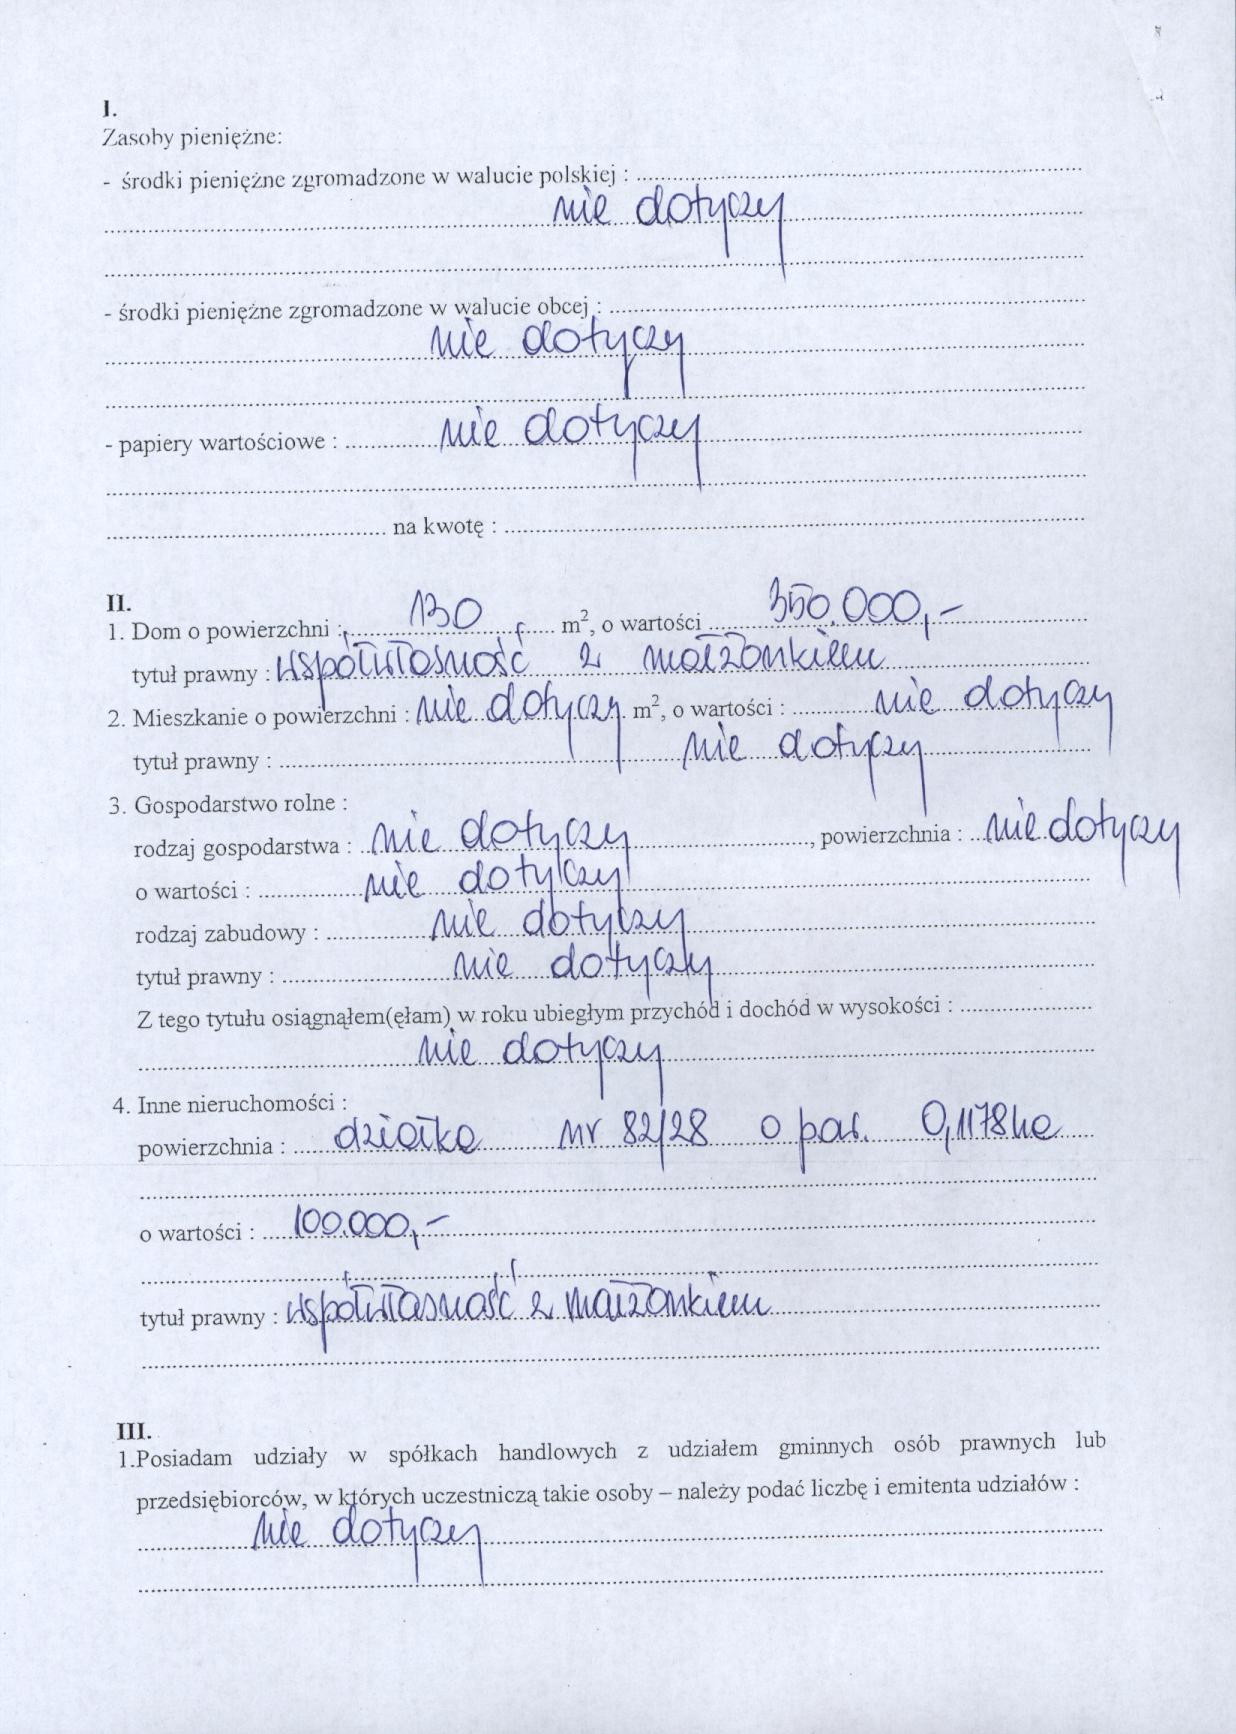 I.
Zasoby pieniężne:
- środki pieniężne zgromadzone w walucie polskiej :
nie dotyczy
- środki pieniężne zgromadzone w walucie obcej :
nie dotyczy
- papiery wartościowe : nie dotyczy
na kwotę :
II.
1. Dom o powierzchni : 130 m², o wartości 350.000,-
tytuł prawny : współwłasność z małżonkiem
2. Mieszkanie o powierzchni : nie dotyczy m², o wartości : nie dotyczy
tytuł prawny : nie dotyczy
3. Gospodarstwo rolne :
rodzaj gospodarstwa : nie dotyczy, powierzchnia : nie dotyczy
o wartości : nie dotyczy
rodzaj zabudowy : nie dotyczy
tytuł prawny : nie dotyczy
Z tego tytułu osiągnąłem(ęłam) w roku ubiegłym przychód i dochód w wysokości :
nie dotyczy
4. Inne nieruchomości :
powierzchnia : działka nr 82/28 o pow. 0,1178 ha
o wartości : 100.000,-
tytuł prawny : współwłasność z małżonkiem
III.
1.Posiadam udziały w spółkach handlowych z udziałem gminnych osób prawnych lub
przedsiębiorców, w których uczestniczą takie osoby – należy podać liczbę i emitenta udziałów :
nie dotyczy